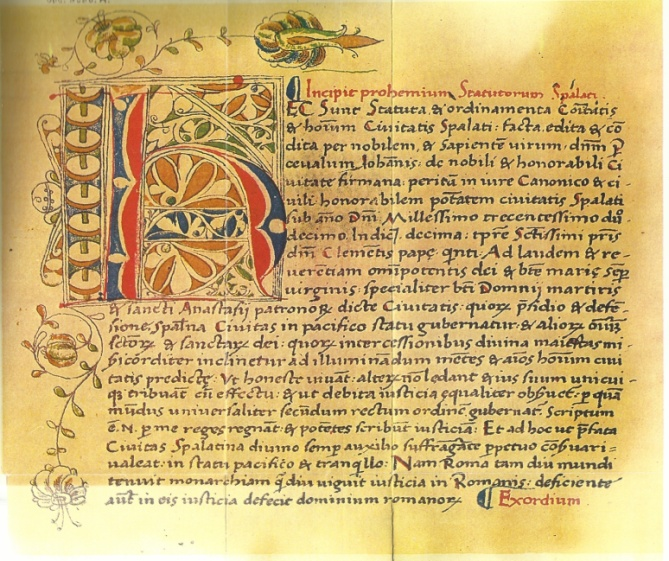 ¶ Incipit prohemium Statutorum Spalati.
HEC Sunt Statuta & ordinamenta Cõitatis
& hoĩum Ciuitatis Spalati: facta edita & cõ
dita per nobilem, & sapientẽ uirum: dnm̃ P
ceualum Iohãnis: de nobili & honorabili Ci
uitate firmana: peritũ in iure Canonico & ci-
uili honorabilem potẽtatem ciuitatis Spalati
sub año Dnĩ Millessimo trecentessimo duo
decimo. Indict̃ decima: tpr̃e Sctĩssimi pris̃
dnĩ Clemẽtis papę quinti. Ad laudem & re-
uerẽtiam omĩpotentis dei & btẽ marię semp̃
uirginis: specialiter btĩ Domnii martiris
& sancti Anastasii patronoꝝ dictę Ciuitatis: quoꝝ p̃sidio & defẽ-
sione, Spal̃na Ciuitas in pacifico statu gubernatur: & alioꝝ oĩum
sctõꝝ & sanctaꝝ dei: quoꝝ intercessionibus diuina maiestas mi-
sicorditer inclinetur ad illuminãdum mẽtes & aĩos hoĩum ciui
tatis predictę. Vt honeste uiuãt: alteꝝ nõ ledant & ius suum unicui-
que tribuãt cũ effectu: & ut debita iusticia equaliter obsuet̃: p quã
mũdus uniuersaliter secũdum rectum ordinẽ gubernat̃. Scriptum
ẽ. N. p me reges regnãt & potẽtes scribũt iusticiã: Et ad hoc ut p̃fata
Ciuitas Spalatina diuino semp̃ auxilio suffragãte ppetuo cõsuari-
ualeat: in statu pacifico & tranq̃llo: Nam Roma tam diu mundi
tenuit monarchiam q̃ diu uiguit iusticia in Romanis: deficiente
aut̃ in eis iusticia defecit dominium romanoꝝ. ¶ Exordium.